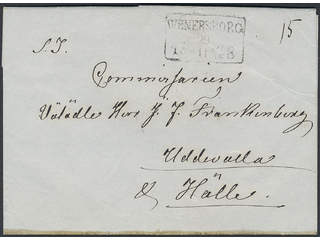 WENERSBORG
15
S. T.
Commissarien
Välädle Herr J. J. Frankenberg
Uddevalla
& Hälle.